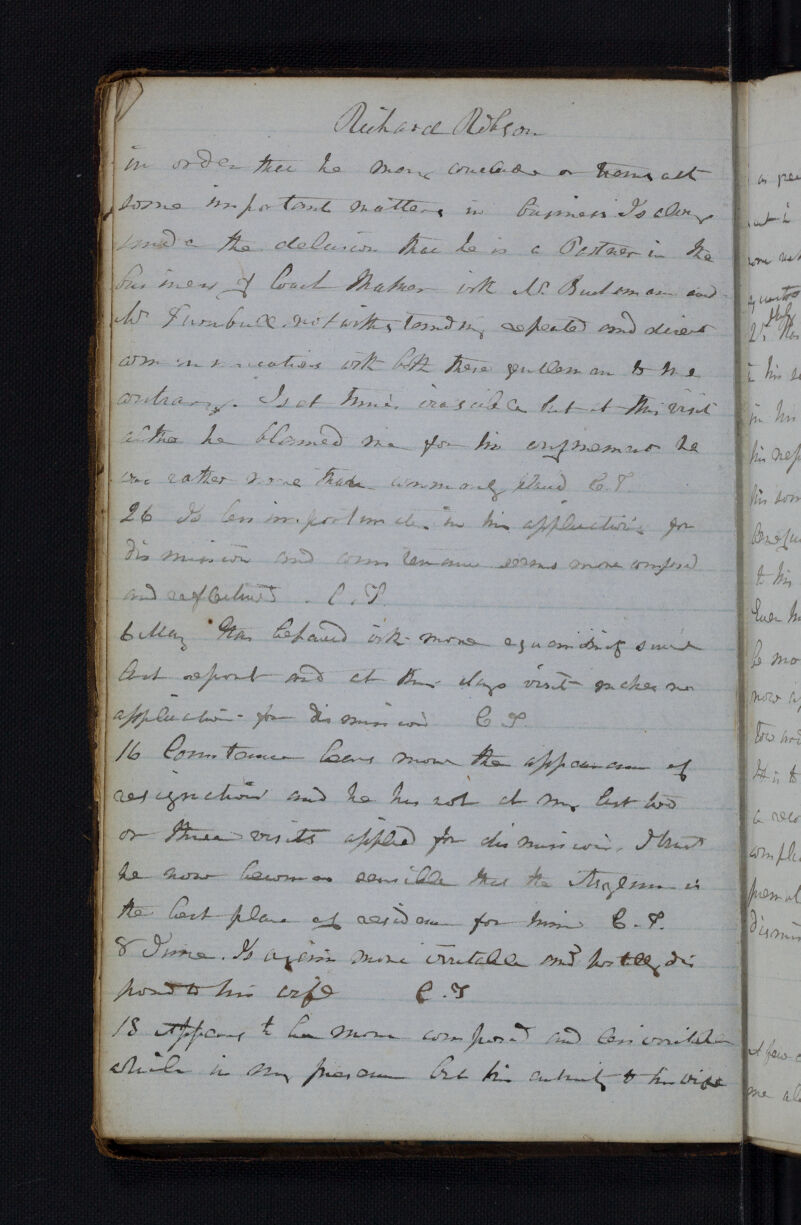 Richard Robson
in order that he may conclude or transact
some important matters in business Is also
under the delusion that he is a Partner in the
business of Coach Maker with Mr. and
Mr Turnbull notwithstanding repeated and direct
communications with both these gentleman to the
contrary. Is at times irascible but at this visit
altho he blamed me for his confinement he
was rather more than commonly C.T.
26 Is less importunate in his applications for
dismission and countenance seems more composed
and reflective. C.T.
6 May Has behaved with more equanimity since
last report and at this days visit makes no
application for dismission C T.
16 Countenance bears more the appearance of
resignation and he has not at my last two
or three visits applied for dismission. I trust
he now becomes sensible that the Asylum is
the best place of residence for him C.T.
8 June. Is again more irritable and hostilely dis
posed to his wife C.T
18 Appears to be more composed and less irritable
while in my presence but his enmity to his wife
as
his
in his
his
his som
to his
be mo
now
a
dismis
A few
me